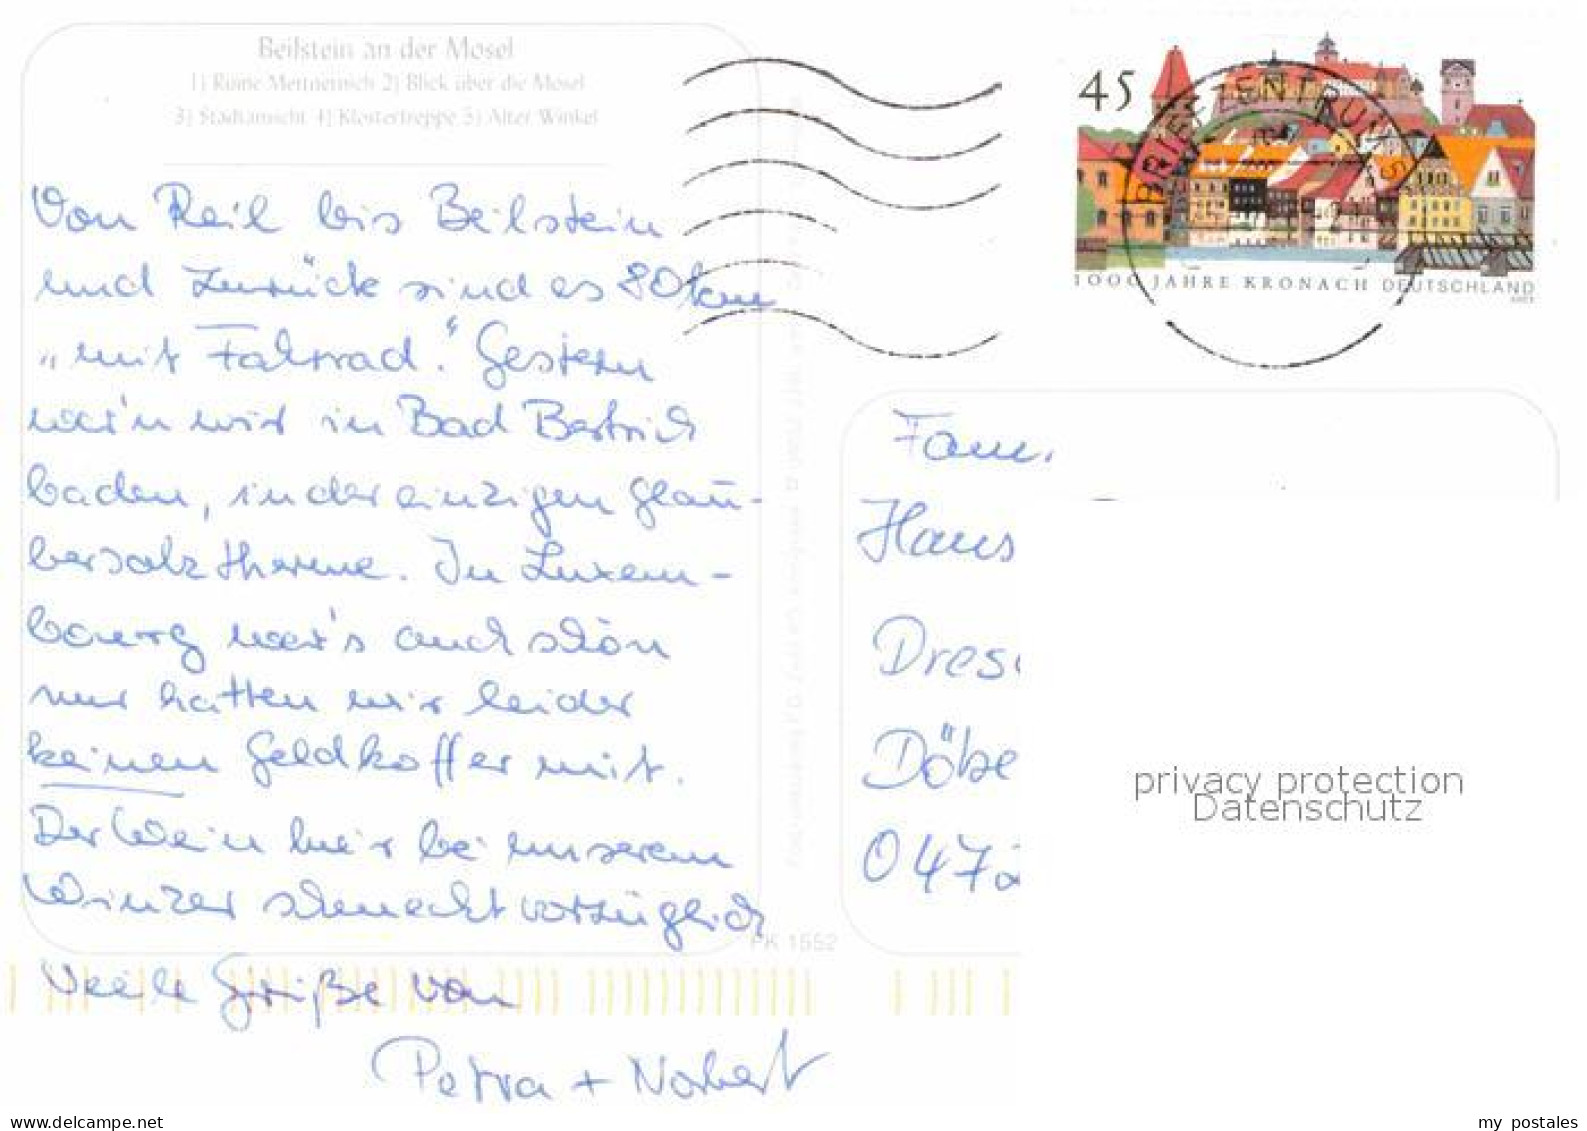 Beilstein an der Mosel
1) Ruine Metternich 2) Blick über die Mosel
3) Stadtansicht 4) Klostertreppe 5) Alter Winkel
Von Reil bis Beilstein
und zurück sind es 80 km
„mit Fahrrad." Gestern
war'n wir in Bad Bertrich
baden, in der einzigen Glau-
bersalztherme. In Luxem-
bourg war's auch schön
nur hatten wir leider
keinen Geldkoffer mit.
Der Wein hier bei unserem
Winzer schmeckt vorzüglich
Viele Grüße von
Petra + Norbert
PK 1552
45
BRIEFZENTRUM
1000 JAHRE KRONACH DEUTSCHLAND
2003
Fam.
Hans
Dres
Döbe
0472
privacy protection
Datenschutz
my postales